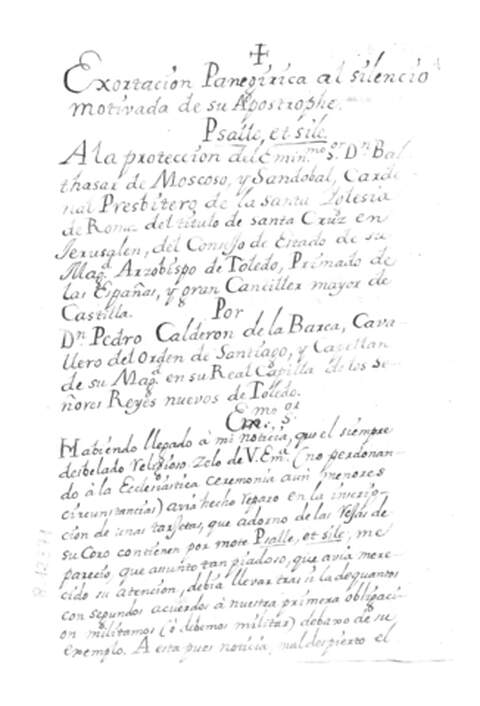 Exortacion Panegirica al silencio
motivada de su Apostrophe.
Psalle, et sile.
A la proteccion del Emin.mo S.or D.n Bal
thasar de Moscoso, y Sandobal, Carde
nal Presbitero de la Santa Iglesia
de Roma del titulo de santa Cruz en
Jerusalen, del Consejo de Estado de su
Mag.d Arzobispo de Toledo, Primado de
las Españas, y gran Canciller mayor de
Castilla. Por
D.n Pedro Calderon de la Barca, Cava-
llero del Orden de Santiago, y Capellan
de su Mag.d en su Real Capilla de los Se-
ñores Reyes nuevos de Toledo.
Em.mo S.or
Habiendo llegado à mi noticia, que el siempre
desbelado religioso zelo de V. Em.a (no perdonan-
do à la Ecclesiástica ceremonia aun menores
circunstancias) avia hecho reparo en la inscrip-
cion de unas tarjetas, que adorno de las Rejas de
su Coro contienen por mote Psalle, et sile, me
parecio, que assunto tan piadoso, que avia mere-
cido su atencion, debia llevar tras si la de quantos
con segundos acuerdos à nuestra primera obligaci-
on militamos (ò debemos militar) debaxo de su
exemplo. A esta pues noticia, mal despierto el